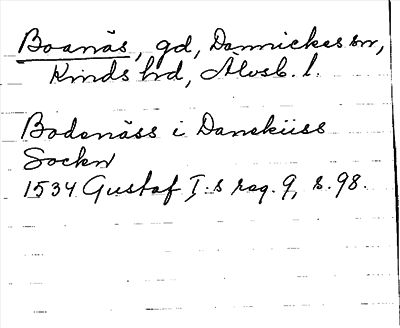 Boanäs, gd, Dannickes sn,
Kinds hd, Älvsb. l.
Bodenäss i Danskiiss
Sockn
1534 Gustaf I:s reg. 9, s. 98.